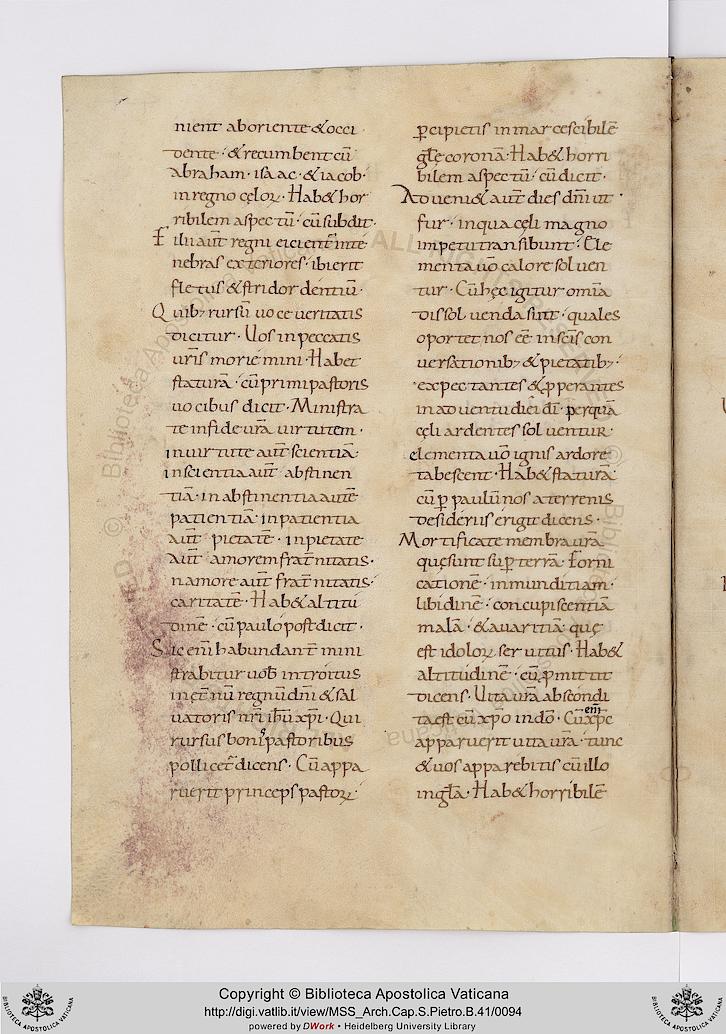 nient aboriente &occi
dente · &recumbent cū
abraham · isaac · &iacob ·
inregno cęloꝝ · Hab& hor
ribilem aspectū · cū subdit ·
Filii aut̄ regni eicient̄ inte
nebras exteriores · ibi erit
fletus &stridor dentiū ·
Quibꝫ rursū uoce ueritatis
dicitur · Uos inpeccatis
ur̄is moriemini · Habet
staturā · cū primi pastoris
uocibus dicit · Ministra
te infide ur̄a uirtutem ·
inuirtute aut̄ scientiā ·
inscientia aut̄ abstinen
tiā · in abstinentia autē
patientiā · inpatientia
aut̄ pietatē · inpietate
aut̄ amorem frat̄nitatis ·
namore aut̄ frat̄nitatis ·
caritatē · Hab& altitu
dinē · cū paulo post dicit ·
Sic enī habundant̄ mini
strabitur uob̄ introitus
inęt̄nū regnū dn̄i &sal
uatoris nr̄i ih̄u xp̄i · Qui
rursus bonis pastoribus
pollicet̄ dicens · Cū appa
ruerit princeps pastoꝝ ·
ꝑcipietis inmarcescibilē
gl̄ę coronā · Hab& horri
bilem aspectū · cū dicit ·
Adueni& aut̄ dies dn̄i ut
fur · inqua cęli magno
impetu transibunt · Ele
menta ũo calore soluen
tur · Cū hęc igitur omīa
dissoluenda sint · quales
oportet nos eē inscīs con
uersationibꝫ &pietatibꝫ ·
expectantes &ꝓperantes
in aduentū diei dī · perquā
cęli ardentes soluentur ·
elementa ũo ignis ardore
tabescent · Hab& staturā
cū ꝑ paulū nos aterrenis
desideriis erigit dicens ·
Mortificate membra ur̄a
quęsunt suꝑ terrā · Forni
cationē · inmunditiam ·
libidinē · concupiscentiā
malā · &auaritiā · quę
est idoloꝝ seruitus · Hab&
altitudinē · cū ꝓmittit
dicens · Uita ur̄a abscondi
ta est cū xp̄o indō · Cū enī xp̄c
apparuerit uita ur̄a · tunc
&uos apparebitis cū illo
ingl̄a · Hab& horribilē
© Biblioteca Apostolica Vaticana
Copyright © Biblioteca Apostolica Vaticana
http://digi.vatlib.it/view/MSS_Arch.Cap.S.Pietro.B.41/0094
powered by DWork • Heidelberg University Library